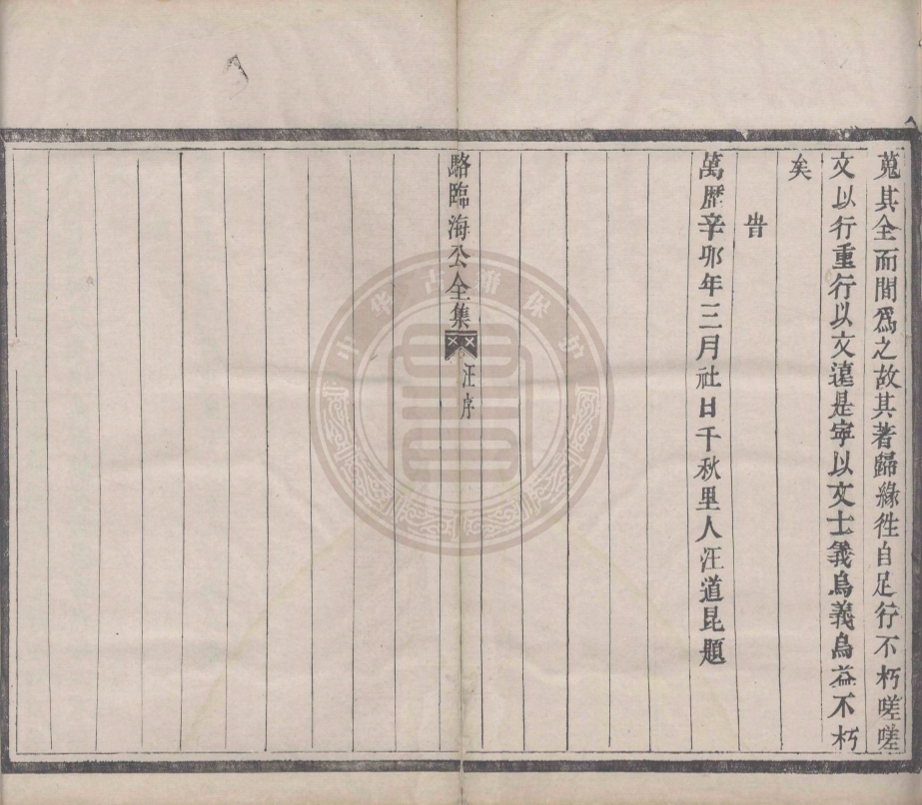 蒐其全而間爲之故其著歸緣徃自足行不朽嗟嗟
文以行重行以文遠是寕以文士義烏義烏益不朽
矣
旹
萬歴辛夘年三月社日千秋里人汪道昆題
駱臨海公全集
汪序
中华古籍保护